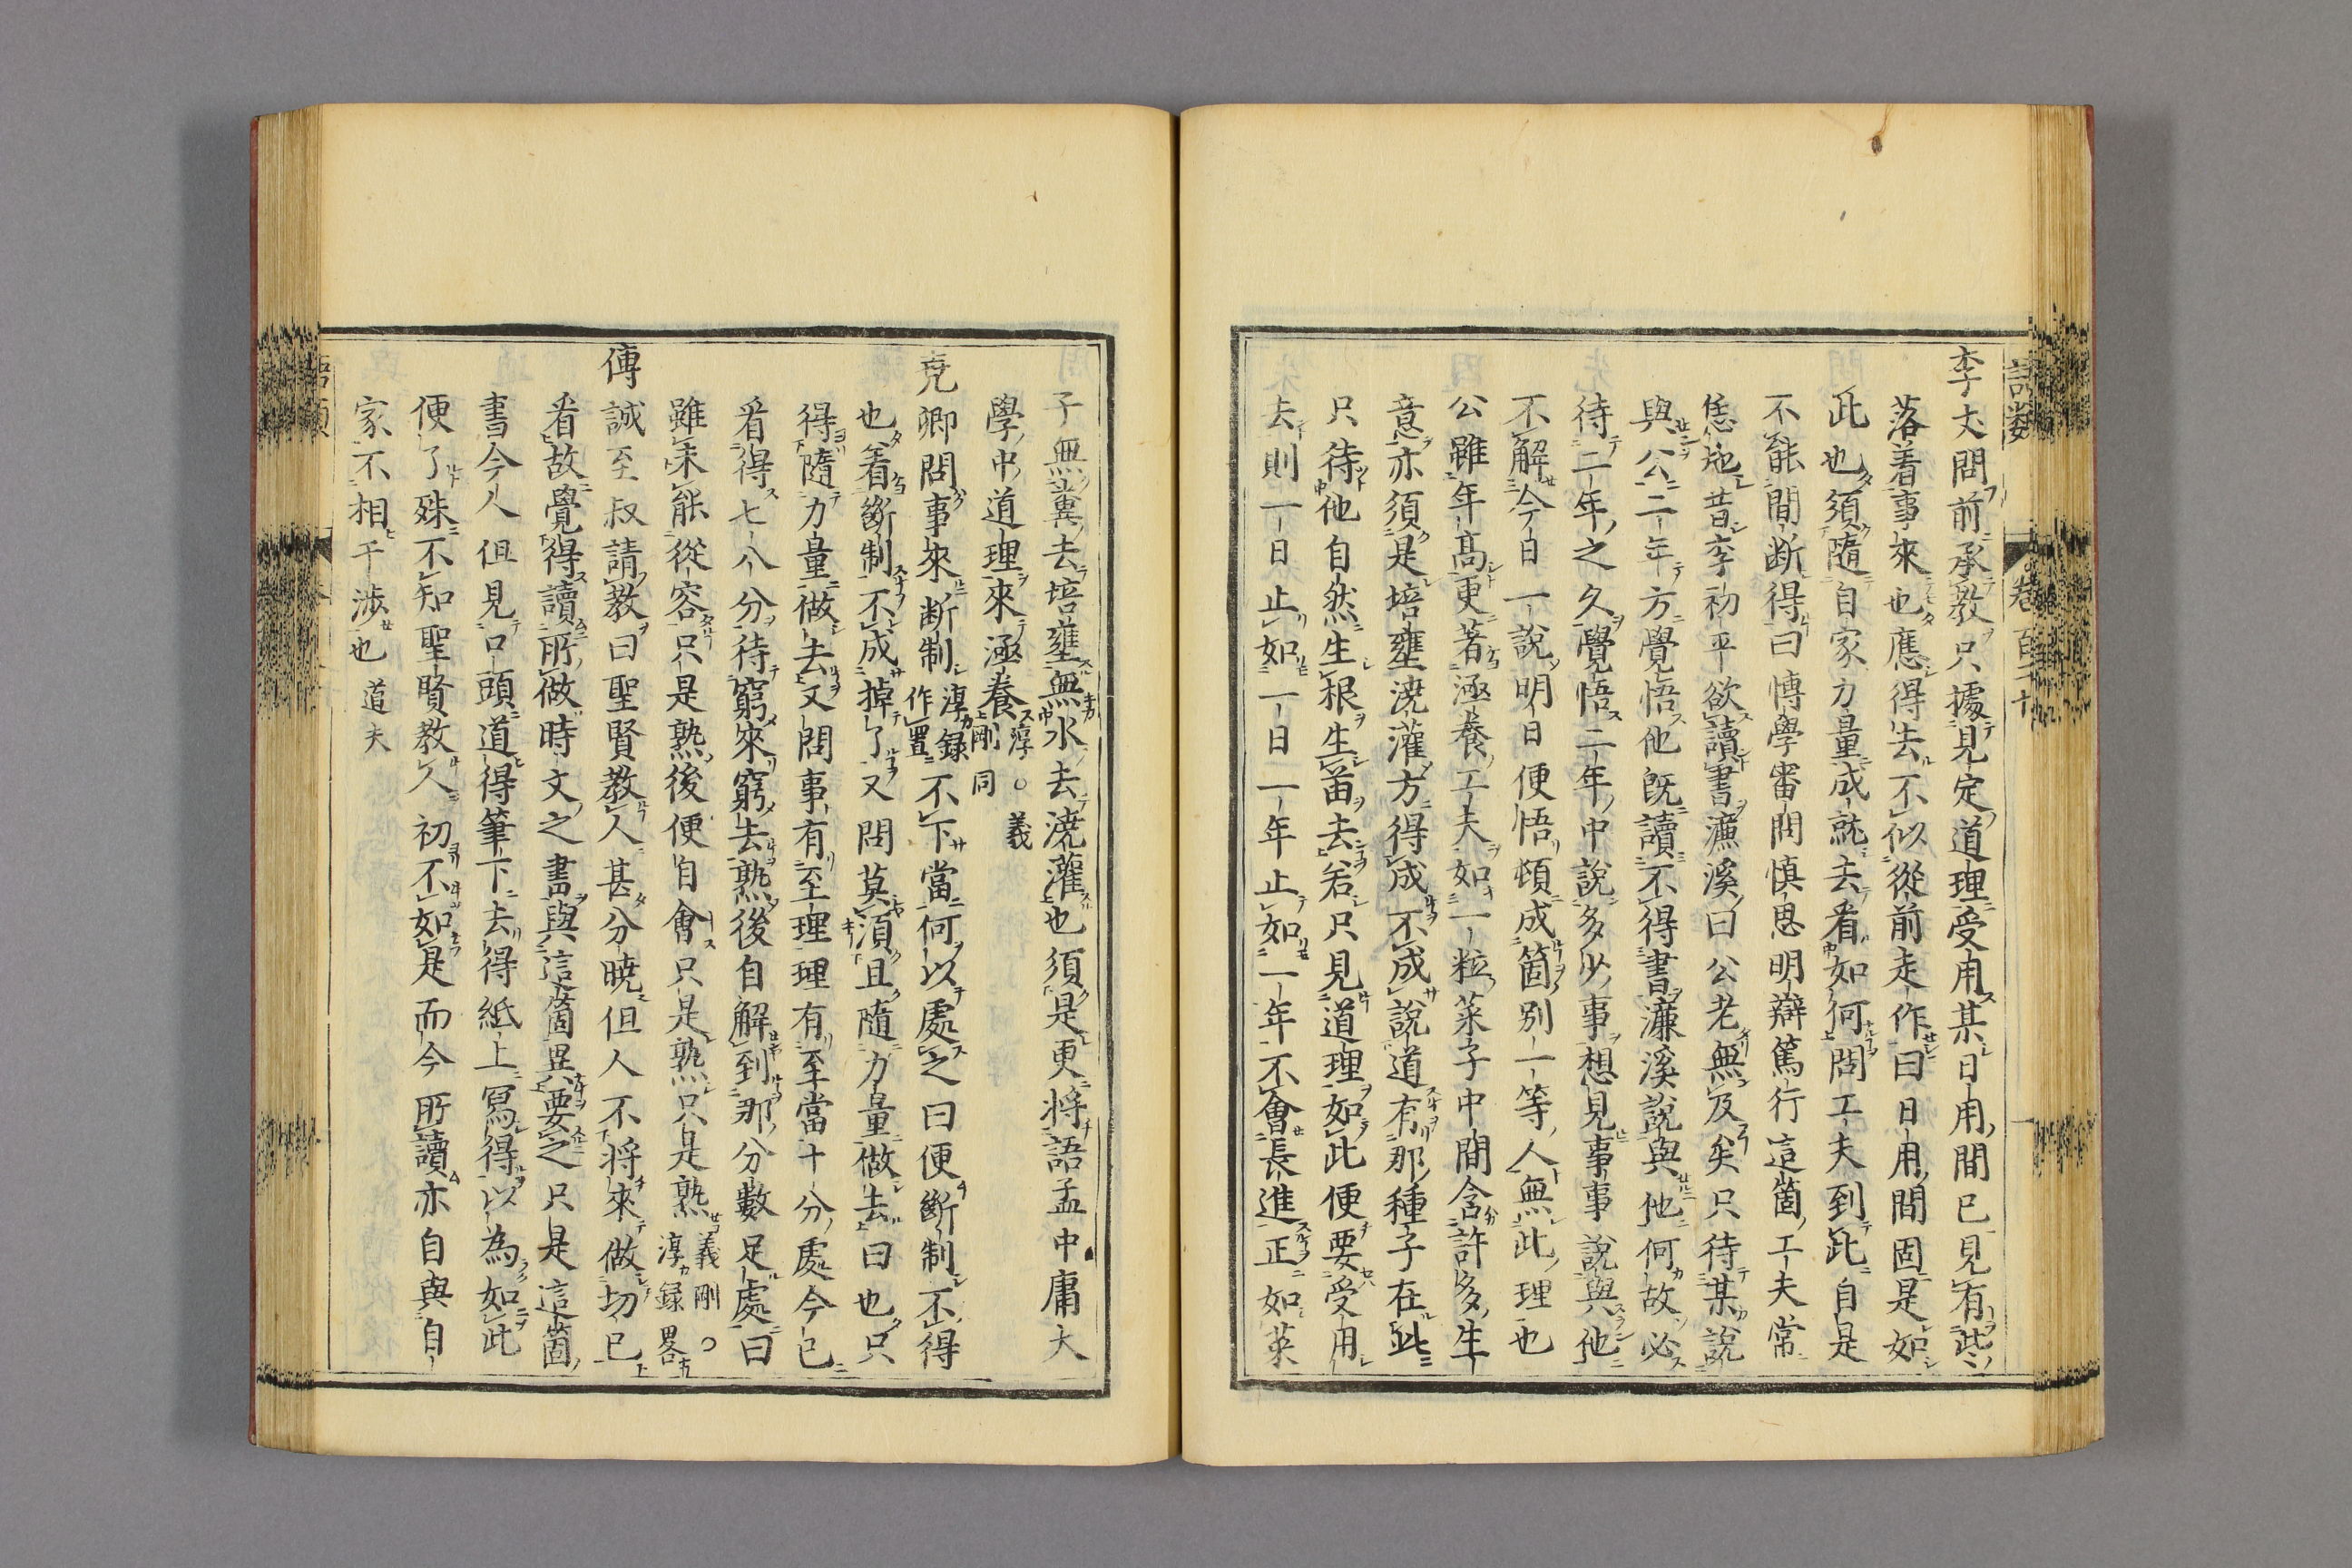 李丈問前承教只據見定道理受用某日用間已見有些
落着事來也應得去不似從前走作曰日用間固是如
此也須隨自家力量成就去看如何問工夫到此自是
不能間断得曰博學審問慎思明辯篤行這箇工夫常
恁地昔李初平欲讀書濂溪曰公老無及矣只待某說
與公二年方覺悟他既讀不得書濂溪說與他何故必
待二年之久覺悟二年中說多少事想見事事說與他
不解今日一說明日便悟頓成箇別一等人無此理也
公雖年高更著涵養工夫如一粒菜子中間含許多生
意亦須是培壅澆灌方得成不成說道有那種子在此
只待他自然生根生苗去若只見道理如此便要受用
去則一日止如一日一年止如一年不會長進正如菜
子無糞去培壅無水去澆灌也須是更将語孟中庸大
學中道理來涵養淳○義
剛同
堯卿問事來断制淳録
作置不下當何以處之曰便斷制不得
也着斷制不成掉了又問莫須且隨力量做去曰也只
得隨力量做去又問事有至理理有至當十分處今已
看得七八分待窮來窮去熟後自解到那分數足處曰
雖未能從容只是熟後便自會只是熟只是熟義剛○
淳録畧
傳誠至叔請教曰聖賢教人甚分曉但人不将來做切已
看故覺得讀所做時文之書與這箇異要之只是這箇
書今人但見口頭道得筆下去得紙上寫得以為如此
便了殊不知聖賢教人初不如是而今所讀亦自與自
家不相干渉也道夫